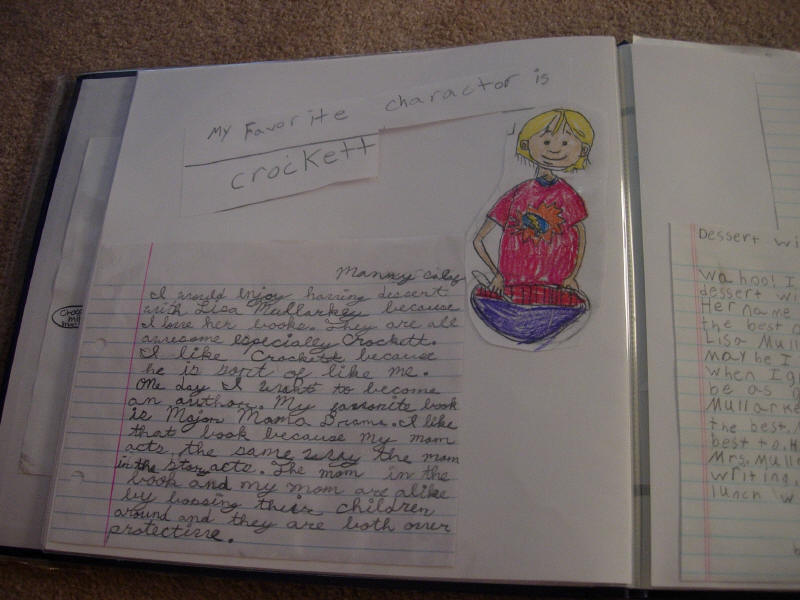 My Favorite charactor is
crockett
Manny
I would enjoy having dessert
with Lisa Mullarkey because
I love her books. They are all
awesome especially Crockett.
I like Crockett because
he is sort of like me.
One day I want to become
an author. My favorite book
is Major Mama Drama. I like
that book because my mom
acts the same way the mom
in the story acts. The mom in the
book and my mom are alike
by bossing their children
around and they are both over
protective.
Dessert wi
Wahoo! I
dessert wi
Her name
the best
Lisa Mull
maybe I
when I g
be as
Mullarke
the best.
best to. H
Mrs. Mull
writing.
lunch w